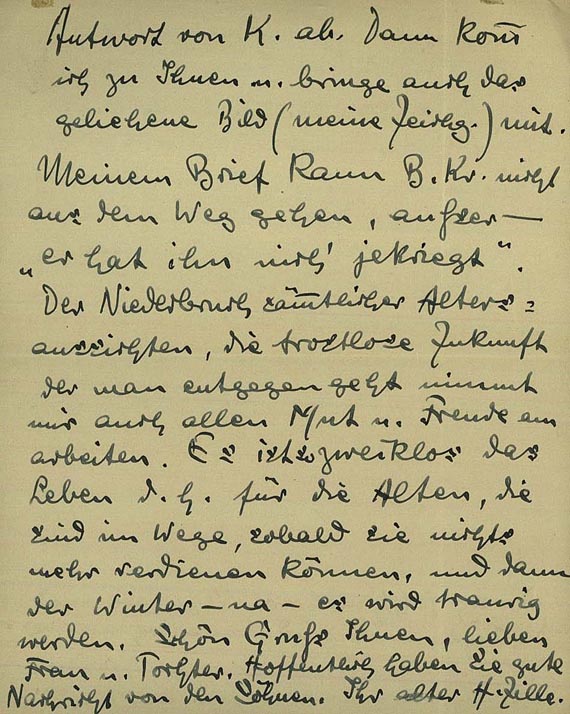 Antwort von K. ab. Dann kom̄
ich zu Ihnen u. bringe auch das
geliehene Bild (meine Zeichg.) mit.
Meinem Brief kann B. Kr. nicht
aus dem Weg gehen, außer —
„er hat ihn nich' jekriegt".
Der Niederbruch säm̄tlicher Alters=
aussichten, die trostlose Zukunft
der man entgegen geht nimmt
mir auch allen Mut u. Freude am
arbeiten. Es ist so zwecklos das
Leben d. h. für die Alten, die
sind im Wege, sobald sie nichts
mehr verdienen können, und dann
der Winter – na – es wird traurig
werden. Schön Gruß Ihnen, lieben
Frau u. Tochter. Hoffentlich haben Sie gute
Nachricht von den Söhnen. Ihr alter H. Zille.